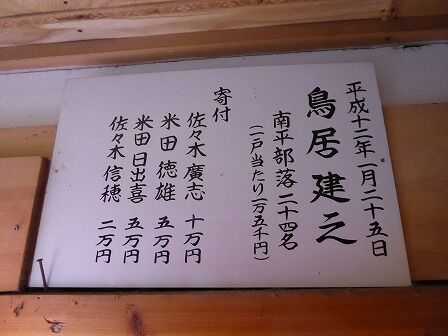 平成十二年一月二十五日
鳥居建之
南平部落二十四名
(一戸当たり一万五千円)
寄付
佐々木廣志 十万円
米田徳雄 五万円
米田日出喜 五万円
佐々木信穂 二万円